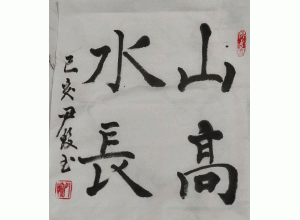 山高
水長
己亥尹毅玉